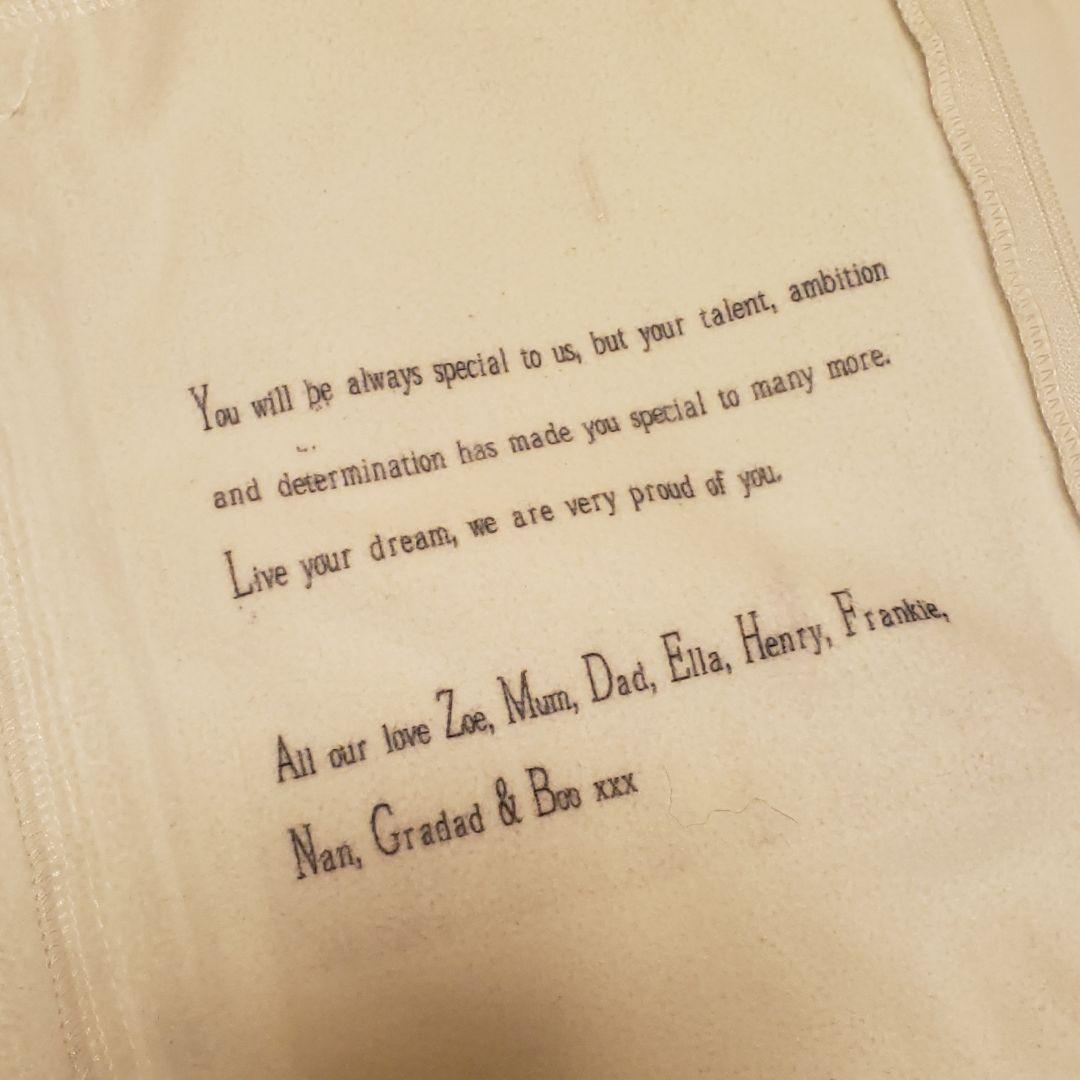 You will be always special to us, but your talent, ambition
and determination has made you special to many more.
Live your dream, we are very proud of you.
All our love Zoe, Mum, Dad, Ella, Henry, Frankie,
Nan, Gradad & Boo xxx